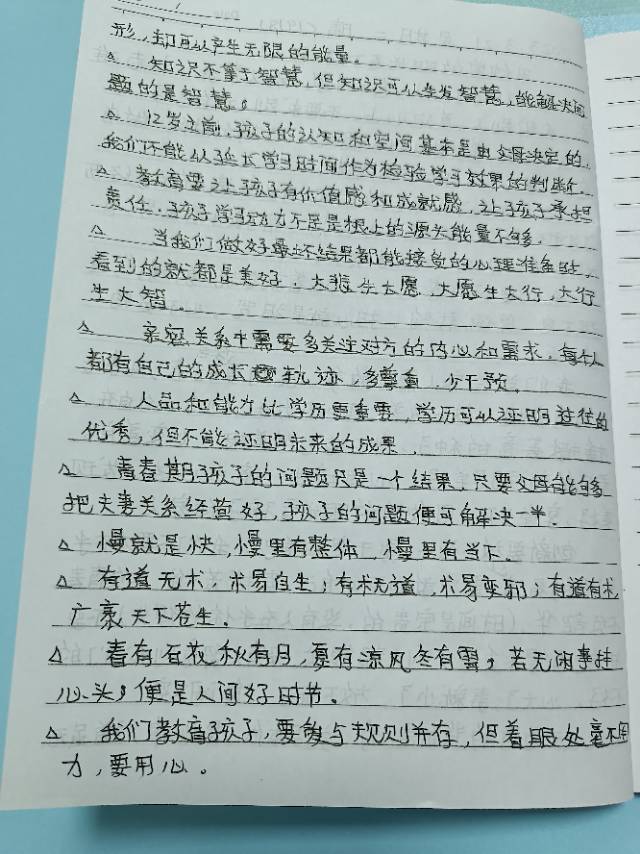 形，却可以产生无限的能量。
△ 知识不等于智慧，但知识可以生发智慧，能解决问
题的是智慧。
△ 12岁之前，孩子的认知和空间基本是由父母决定的。
我们不能以延长学习时间作为检验学习效果的判断。
△ 教育要让孩子有价值感和成就感，让孩子承担
责任，孩子学习动力不足是根上的源头能量不够。
△ 当我们做好最坏结果都能接受的心理准备时，
看到的就都是美好，大悲生大愿，大愿生大行，大行
生大智。
△ 亲密关系中需要多关注对方的内心和需求，每个人
都有自己的成长轨迹，多尊重，少干预。
△ 人品和能力比学历更重要，学历可以证明过往的
优秀，但不能证明未来的成果。
△ 青春期孩子的问题只是一个结果，只要父母能够
把夫妻关系经营好，孩子的问题便可解决一半。
△ 慢就是快，慢里有整体，慢里有当下。
△ 有道无术，术易自生；有术无道，术易变邪；有道有术
广袤天下苍生。
△ 春有百花秋有月，夏有凉风冬有雪，若无闲事挂
心头，便是人间好时节。
△ 我们教育孩子，要与规则并存，但着眼处毫不用
力，要用心。